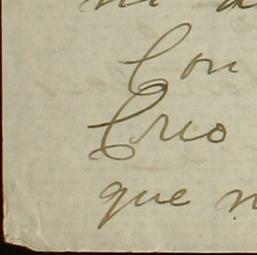 Con
Creo
que